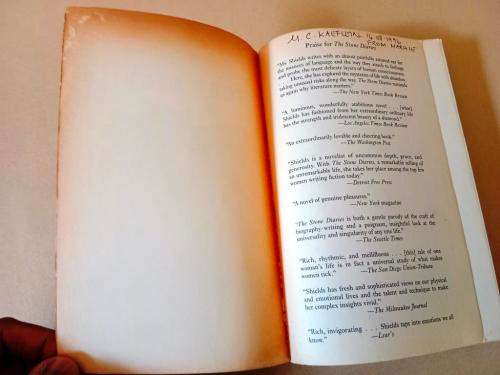 M. C. 16.08.1996
FROM
Praise for The Stone Diaries
"Ms. Shields writes with an almost painfully attuned ear for
the nuances of language and the way they attach to feelings
and probe the most delicate layers of human consciousness.
Here, she has explored the mysteries of life with abandon,
taking unusual risks along the way. The Stone Diaries reminds
us again why literature matters."
—The New York Times Book Review
"A luminous, wonderfully ambitious novel . . . [that]
Shields has fashioned from her extraordinary ordinary life
has the strength and iridescent beauty of a diamond."
—Los Angeles Times Book Review
"An extraordinarily lovable and cheering book."
—The Washington Post
"Shields is a novelist of uncommon depth, grace, and
generosity. With The Stone Diaries, a remarkable telling of
an unremarkable life, she takes her place among the top few
women writing fiction today."
—Detroit Free Press
"A novel of genuine pleasures."
—New York magazine
"The Stone Diaries is both a gentle parody of the craft of
biography-writing and a poignant, insightful look at the
universality and singularity of any one life."
—The Seattle Times
"Rich, rhythmic, and mellifluous . . . [this] tale of one
woman's life is in fact a universal study of what makes
women tick."
—The San Diego Union-Tribune
"Shields has fresh and sophisticated views on our physical
and emotional lives and the talent and technique to make
her complex insights vivid."
—The Milwaukee Journal
"Rich, invigorating . . . Shields taps into emotions we all
know."
—Lear's